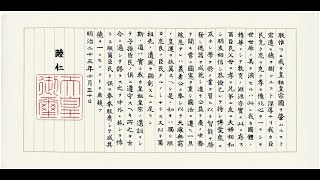 朕惟フニ我カ皇祖皇宗國ヲ肇ムルコト
宏遠ニ德ヲ樹ツルコト深厚ナリ我カ臣
民克ク忠ニ克ク孝ニ億兆心ヲ一ニシテ
世世厥ノ美ヲ濟セルハ此レ我カ國體ノ
精華ニシテ教育ノ淵源亦實ニ此ニ存ス
爾臣民父母ニ孝ニ兄弟ニ友ニ夫婦相和
シ朋友相信シ恭儉己レヲ持シ博愛衆
ニ及ホシ學ヲ修メ業ヲ習ヒ以テ智能ヲ啓
發シ德器ヲ成就シ進テ公益ヲ廣メ世務ヲ
開キ常ニ國憲ヲ重シ國法ニ遵ヒ一旦
緩急アレハ義勇公ニ奉シ以テ天壤無窮
ノ皇運ヲ扶翼スヘシ是ノ如キハ獨リ朕
カ忠良ノ臣民タルノミナラス又以テ爾
祖先ノ遺風ヲ顯彰スルニ足ラン
斯ノ道ハ實ニ我カ皇祖皇宗ノ遺訓ニシ
テ子孫臣民ノ俱ニ遵守スヘキ所之ヲ古
今ニ通シテ謬ラス之ヲ中外ニ施シテ悖
ラス朕爾臣民ト俱ニ拳拳服膺シテ咸其
德ヲ一ニセンコトヲ庶幾フ
明治二十三年十月三十日
睦仁
天皇
御璽